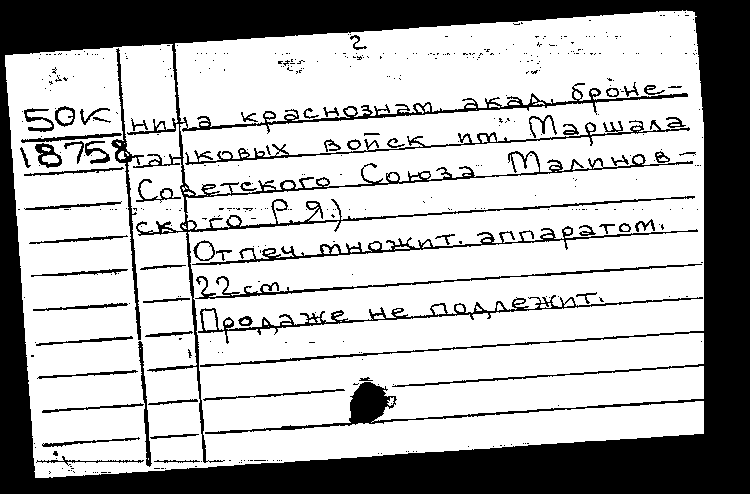 2
50К нина краснознам. акад. броне-
18758 танковых войск им. Маршала
Советского Союза Малинов-
ского Р. Я.).
Отпеч. множит. аппаратом.
22 см.
Продаже не подлежит.